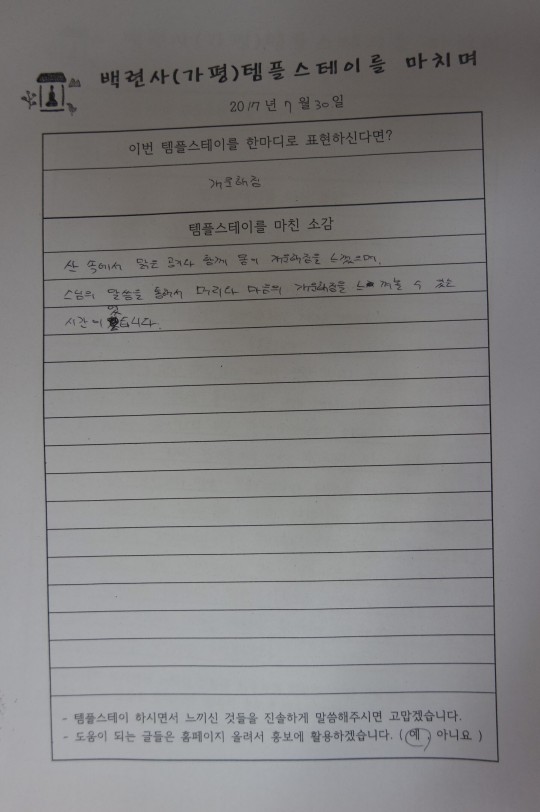 백련사(가평)템플스테이를 마치며
2017년 7월 30일
이번 템플스테이를 한마디로 표현하신다면?
개운해짐
템플스테이를 마친 소감
산 속에서 맑은 공기와 함께 몸이 개운해짐을 느꼈으며,
스님의 말씀을 통해서 머리와 마음의 개운해짐을 느껴볼 수 있는
시간이 었습니다.
- 템플스테이 하시면서 느끼신 것들을 진솔하게 말씀해주시면 고맙겠습니다.
- 도움이 되는 글들은 홈페이지 올려서 홍보에 활용하겠습니다. ( 예, 아니요 )